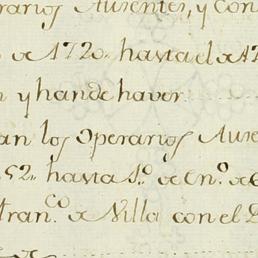 rarios Ausentes, y con
de 1720. hasta el de 17
y han de haver
an los Operarios Ause
52. hasta 1.º de En.º de
tran.co de Villa con el